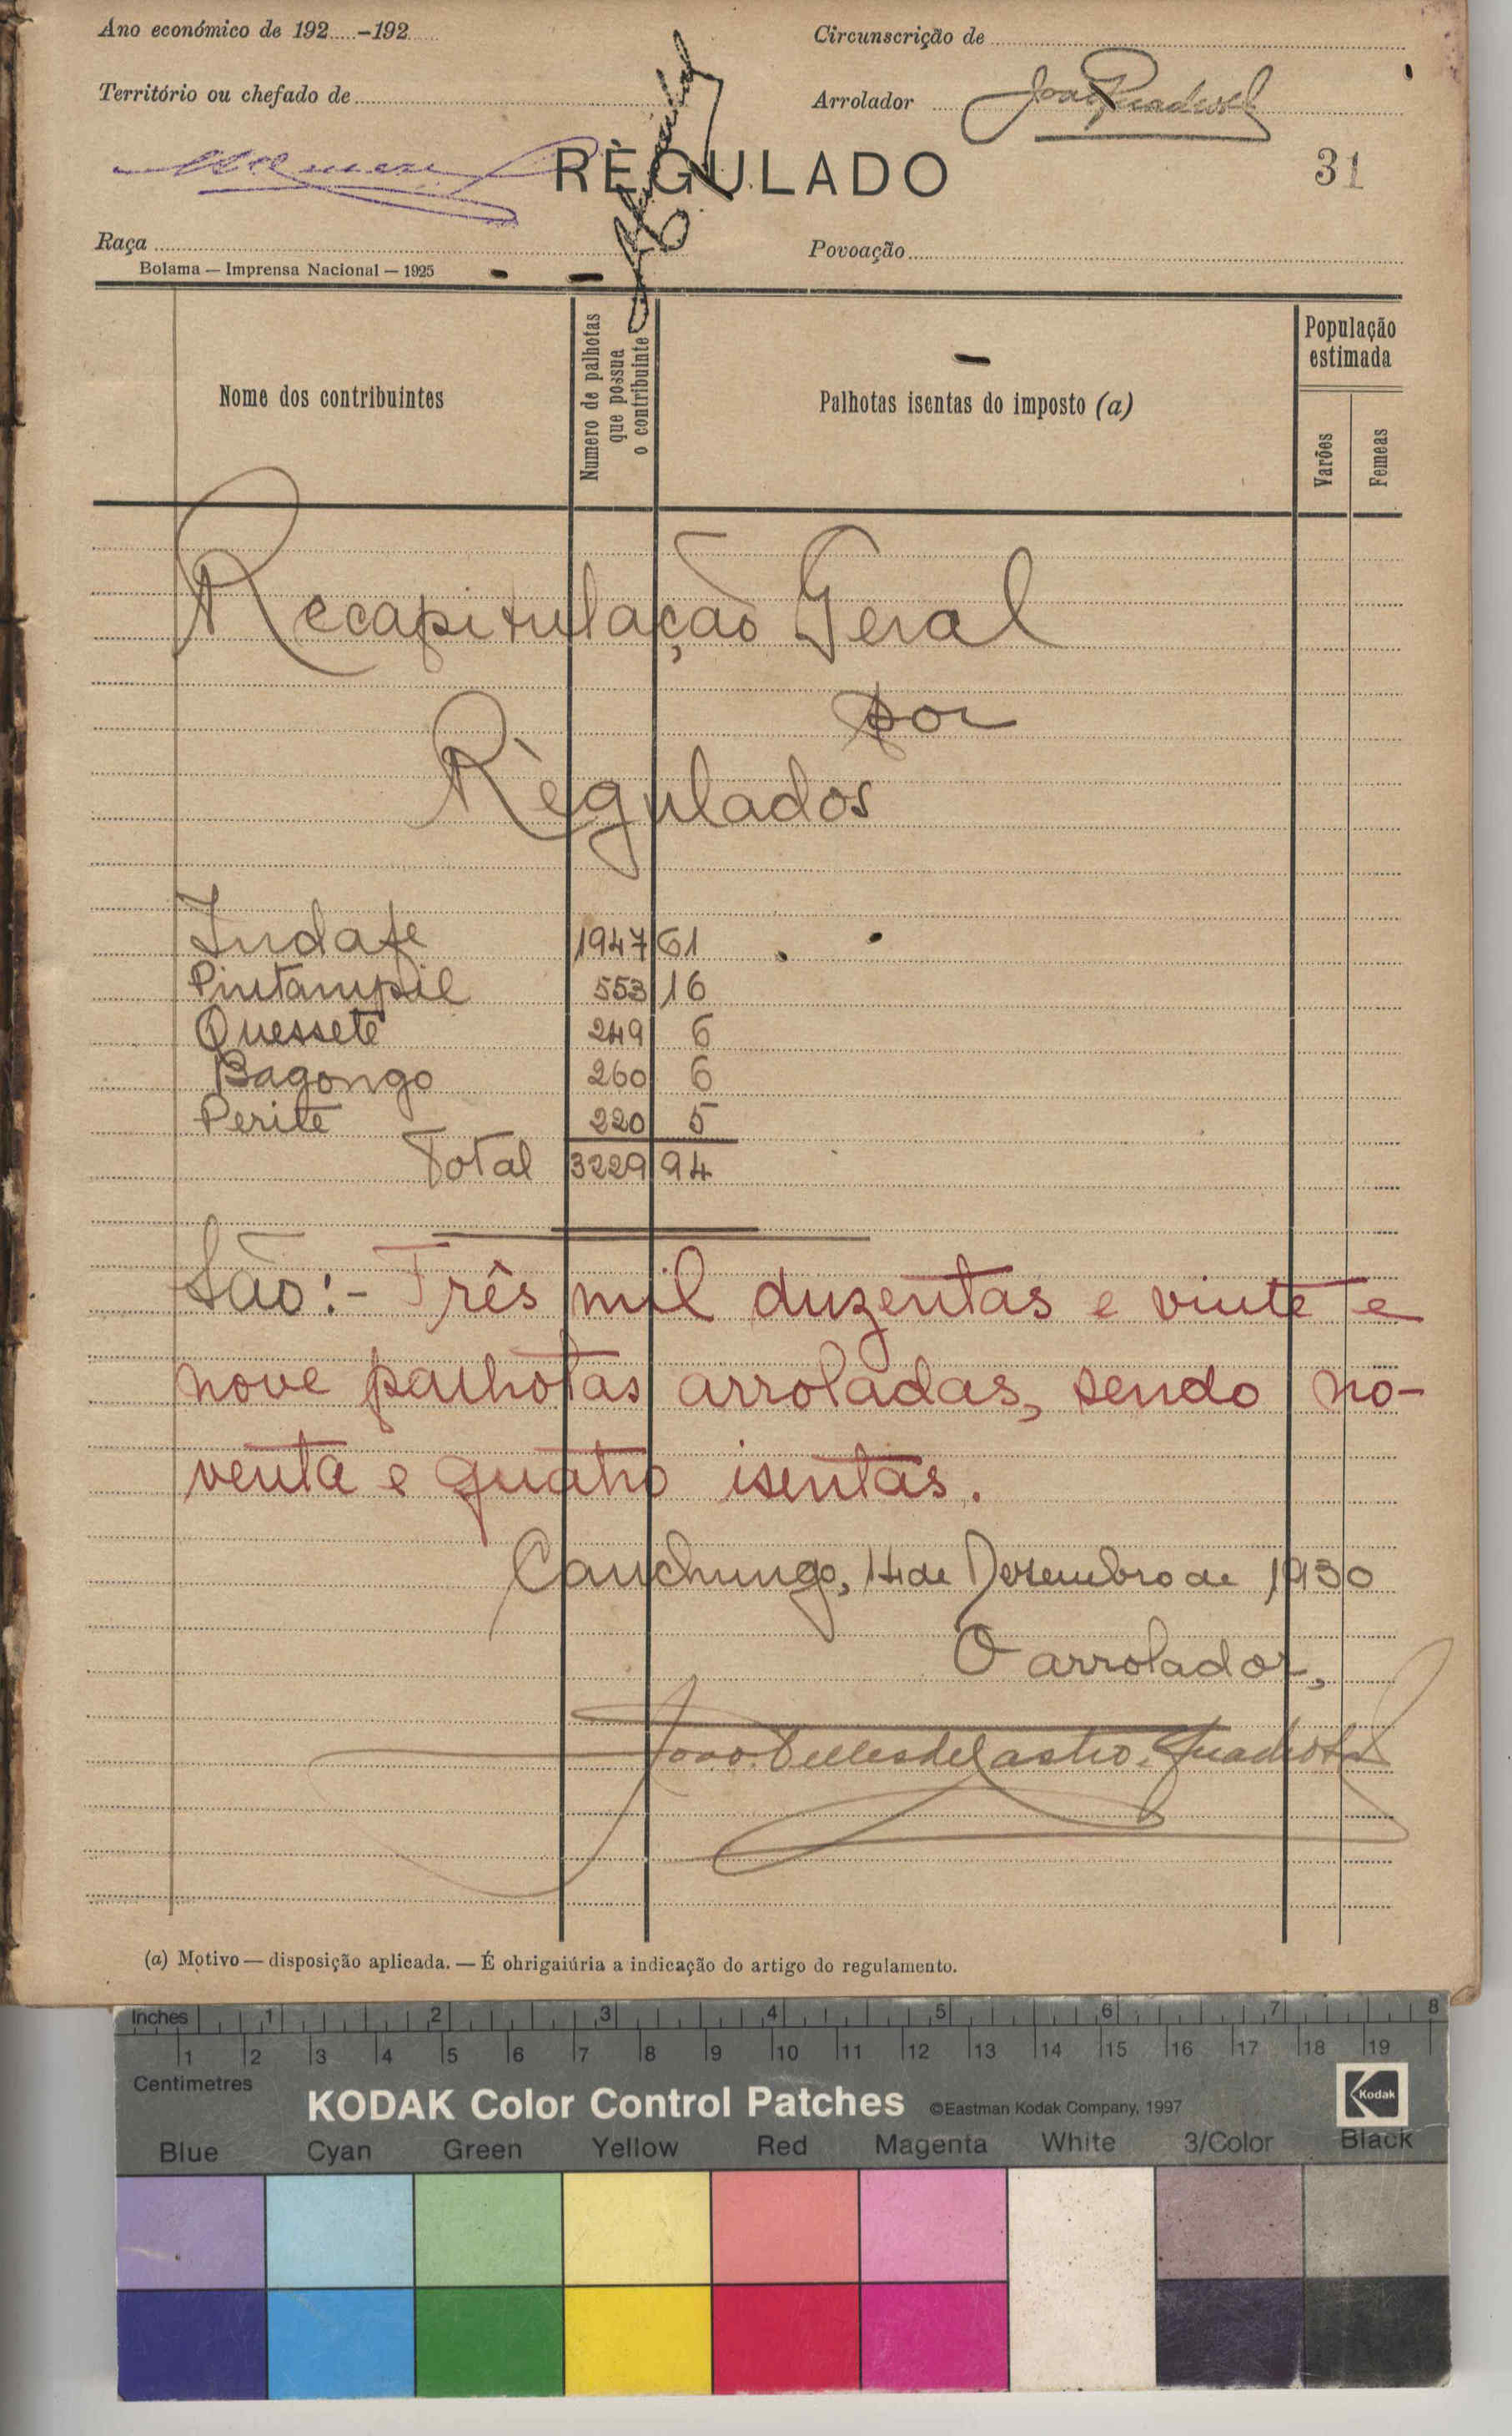 Ano económico de 192.....-192.....
Circunscrição de
Território ou chefado de
Arrolador
RÈGULADO
31
Raça
Povoação
Bolama — Imprensa Nacional — 1925
Nome dos contribuintes
Numero de palhotas que possua o contribuinte
Palhotas isentas do imposto (a)
População estimada
Varões
Femeas
Recapitulação Geral
por
Règulados
Indafe 1947 61
Pintampil 553 16
Quessete 249 6
Bagongo 260 6
Perite 220 5
Total 3229 94
São:- Três mil duzentas e vinte e
nove palhotas arroladas, sendo no-
venta e quatro isentas.
Canchungo, 14 de Dezembro de 1930
O arrolador,
João Telles de Castro Quadros
(a) Motivo — disposição aplicada. — É ohrigaiúria a indicação do artigo do regulamento.
Inches 1 2 3 4 5 6 7 8
1 2 3 4 5 6 7 8 9 10 11 12 13 14 15 16 17 18 19
Centimetres
KODAK Color Control Patches ©Eastman Kodak Company, 1997 Kodak
Blue Cyan Green Yellow Red Magenta White 3/Color Black